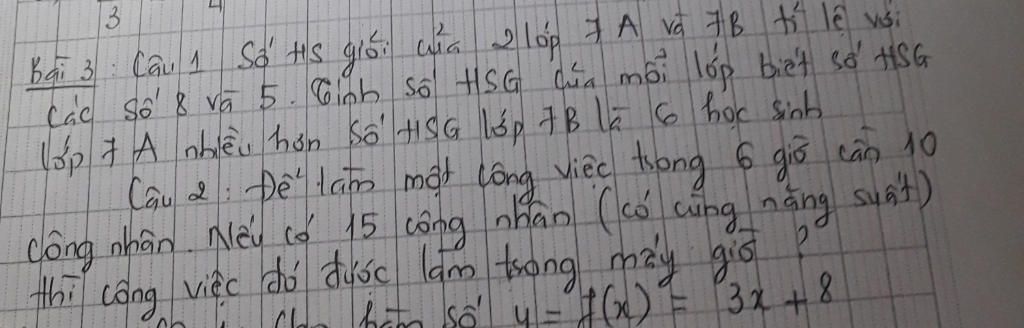 3 4
Bài 3: Câu 1 Số HS giỏi của 2 lớp 7A và 7B tỉ lệ với
các số 8 và 5. Tính số HSG của mỗi lớp biết số HSG
lớp 7A nhiều hơn số HSG lớp 7B là 6 học sinh
Câu 2: Để làm một công việc trong 6 giờ cần 10
công nhân. Nếu có 15 công nhân (có cùng năng suất)
thì công việc đó được làm trong mấy giờ?
hàm số y = f(x) = 3x + 8